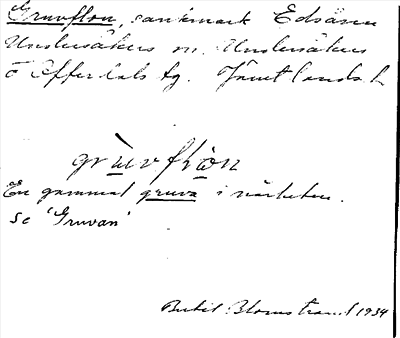 Gruvflon, sankmark Edsåsen
Undersåkers sn. Undersåkers
o Offerdals tg. Jämtlands l.
grùvflòn
En gammal gruva i närheten.
se 'Gruvan'
Bertil Blomstrand 1934